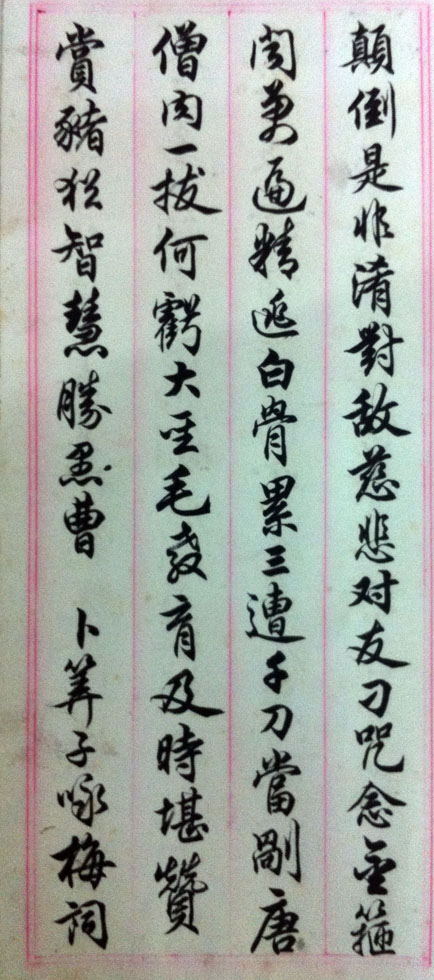 顛倒是非淆對敌慈悲对友刁咒念金箍
闻萬遍精逃白骨累三遭千刀當剮唐
僧肉一拔何虧大圣毛教育及時堪贊
賞豬犹智慧勝愚曹 卜算子咏梅詞